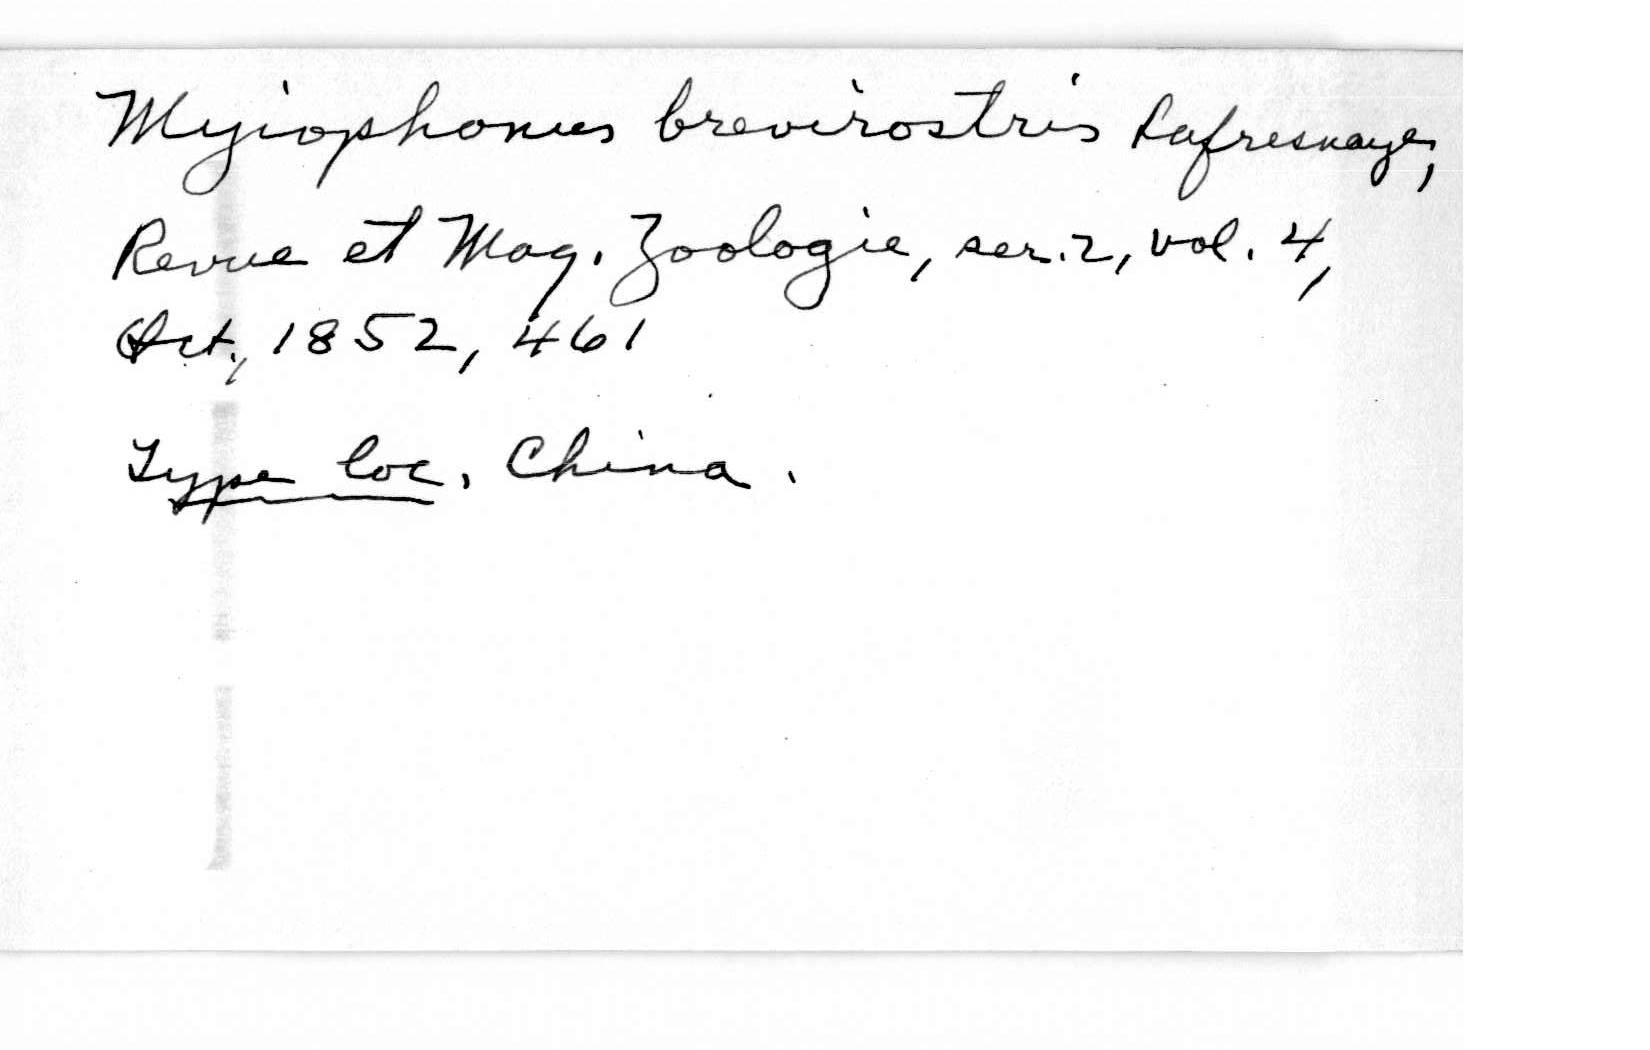 Myiophonus brevirostris Lafresnaye,
Revue et Mag. Zoologie, ser. 2, vol. 4,
Oct., 1852, 461
Type loc. China.